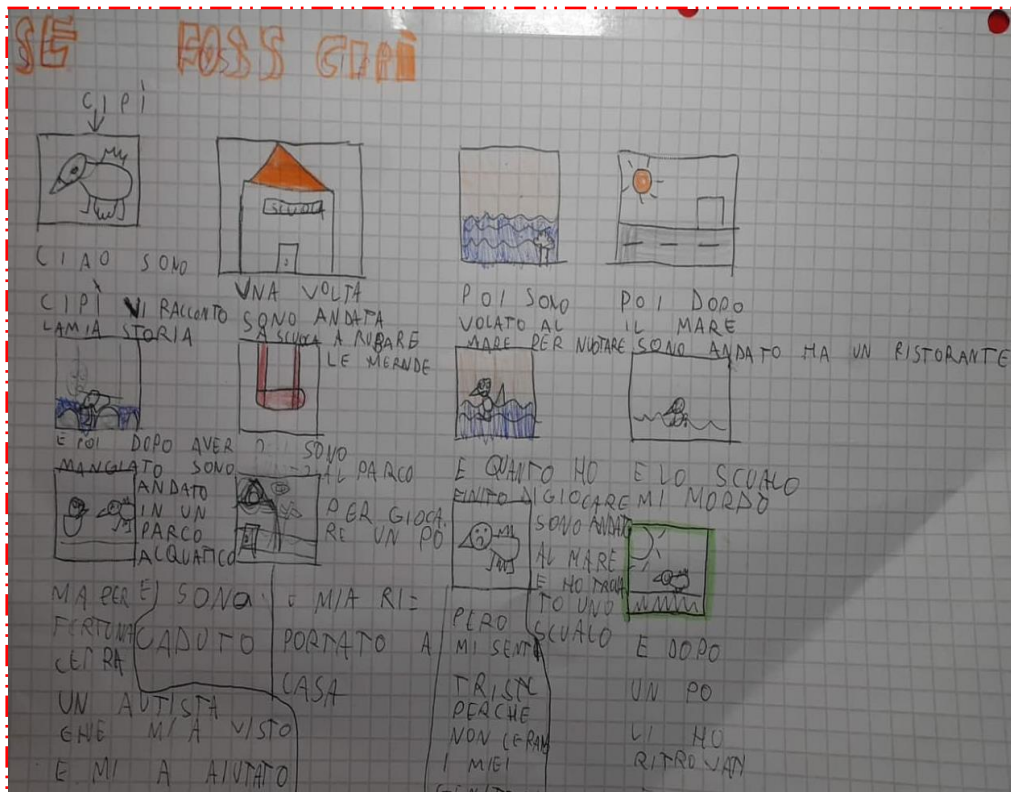 SE FOSS CIPÌ
CIPÌ
SCUOLA
CIAO SONO
CIPÌ VI RACCONTO
LA MIA STORIA
UNA VOLTA
SONO ANDATA
A SCUOLA A RUBARE
LE MERNDE
POI SONO
VOLATO AL
MARE PER NUOTARE
POI DOPO
IL MARE
SONO ANDATO HA UN RISTORANTE
E POI DOPO AVER
MANGIATO SONO
ANDATO
IN UN
PARCO
ALQUATICO
SONO
AL PARCO
PER GIOCA
RE UN PO
E QUANTO HO
FINITO DI GIOCARE
SONO ANDATO
AL MARE
E HO TROVA
TO UNO
SCUALO
E LO SCUALO
MI MORDO
MA PER
FORTUNA
CERA
UN AUTISTA
CHE MI A VISTO
E MI A AIUTATO
E SONO
CADUTO
E MIA RI=
PORTATO A
CASA
PERO
MI SENTO
TRISTE
PERCHE
NON CERAN
I MIEI
E DOPO
UN PO
LI HO
RITROVAN